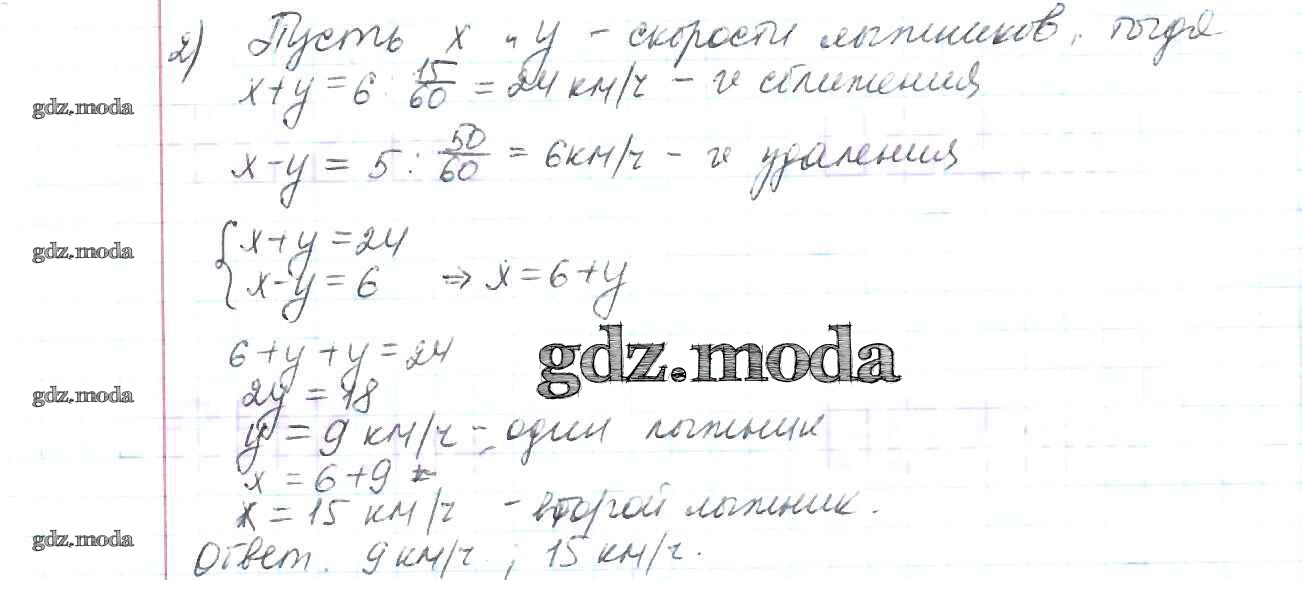 2) Пусть x и y - скорости лыжников, тогда
x+y = 6 : 15/60 = 24 км/ч - v сближения
gdz.moda
x-y = 5 : 50/60 = 6 км/ч - v удаления
{ x+y = 24
gdz.moda
x-y = 6 => x = 6+y
6+y+y = 24
gdz.moda
2y = 18
gdz.moda
y = 9 км/ч - один лыжник
x = 6+9
x = 15 км/ч - второй лыжник.
gdz.moda
Ответ. 9 км/ч ; 15 км/ч.